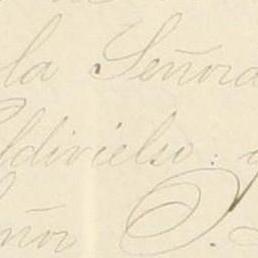 la Señora
ldivielso: y
eñor D.